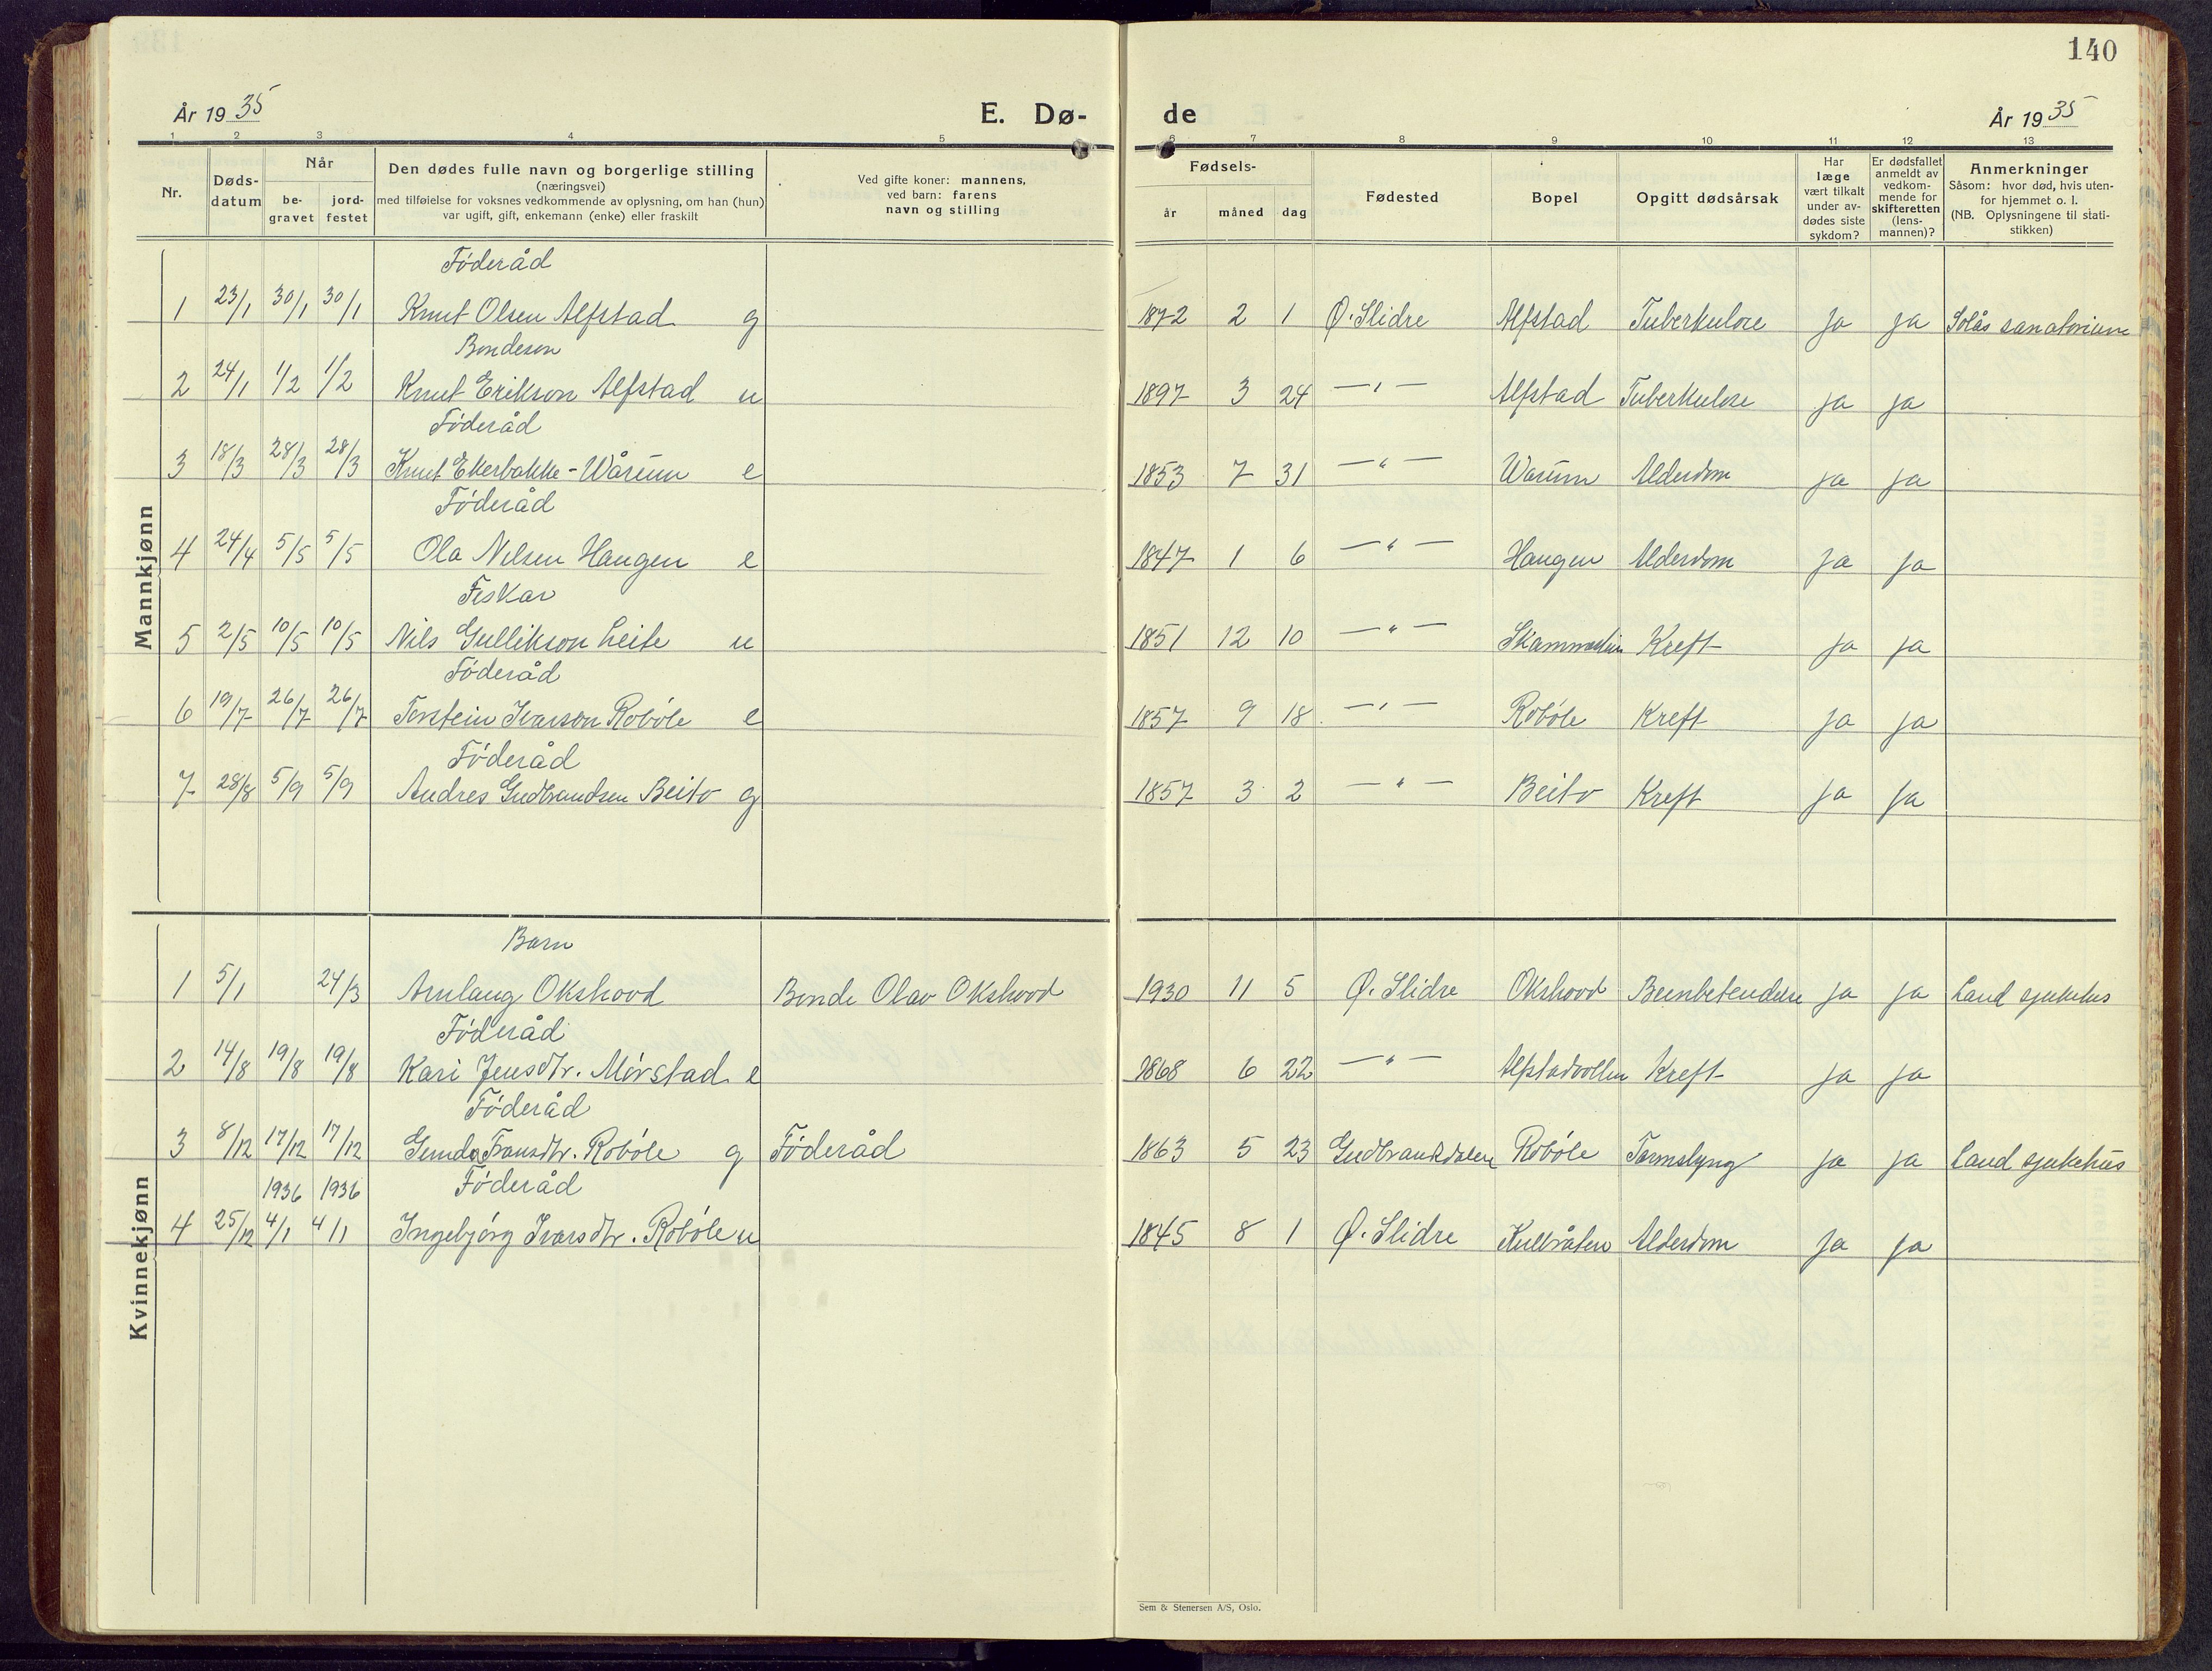 140
År 1935 E. Dø- de År 1935
1 2 3 4 5 6 7 8 9 10 11 12 13
Nr.
Døds-
datum
Når
be-
gravet
jord-
festet
Den dødes fulle navn og borgerlige stilling
(næringsvei)
med tilføielse for voksnes vedkommende av oplysning, om han (hun)
var ugift, gift, enkemann (enke) eller fraskilt
Ved gifte koner: mannens,
ved barn: farens
navn og stilling
Fødsels-
år måned dag
Fødested
Bopel
Opgitt dødsårsak
Har
læge
vært tilkalt
under av-
dødes siste
sykdom?
Er dødsfallet
anmeldt av
vedkom-
mende for
skifteretten
(lens-
mannen)?
Anmerkninger
Såsom: hvor død, hvis uten-
for hjemmet o. l.
(NB. Oplysningene til stati-
stikken)
Mannkjønn
Föderåd
1 23/1 30/1 30/1 Knut Olsen Alfstad g 1872 2 1 Ø. Slidre Alfstad Tuberkulose ja ja Solås sanatorium
Bondeson
2 24/1 1/2 1/2 Knut Erikson Alfstad u 1897 3 24 —"— Alfstad Tuberkulose ja ja
Föderåd
3 18/3 28/3 28/3 Knut Ekerbakke-Wårum e 1853 7 31 —"— Warum Alderdom ja ja
Föderåd
4 24/4 5/5 5/5 Ola Nilsen Haugen e 1847 1 6 —"— Haugen Alderdom ja ja
Feskar
5 2/5 10/5 10/5 Nils Gullikson Leite u 1851 12 10 —"— Kreft ja ja
Föderåd
6 19/7 26/7 26/7 Torstein Ivarson Robøle e 1857 9 18 —"— Robøle Kreft ja ja
Föderåd
7 28/8 5/9 5/9 Andres Gudbrandsen Beito g 1857 3 2 —"— Beito Kreft ja ja
Kvinnekjønn
Barn
1 5/1 24/3 Arnlaug Okshovd Bonde Olav Okshovd 1930 11 5 Ø. Slidre Okshovd Beinbetendelse ja ja Land sjukehus
Föderåd
2 14/8 19/8 19/8 Kari Jensdtr. Mørstad e 1868 6 22 —"— Alfstadvollen Kreft ja ja
Föderåd
3 8/12 17/12 17/12 Gunda Fransdtr. Robøle g Föderåd 1863 5 23 Gudbrandsdalen Robøle Tarmslyng ja ja Land sjukehus
1936 1936 Föderåd
4 25/12 4/1 4/1 Ingebjörg Ivarsdtr. Robøle u 1845 8 1 Ø. Slidre Alderdom ja ja
Sem & Stenersen A/S, Oslo.